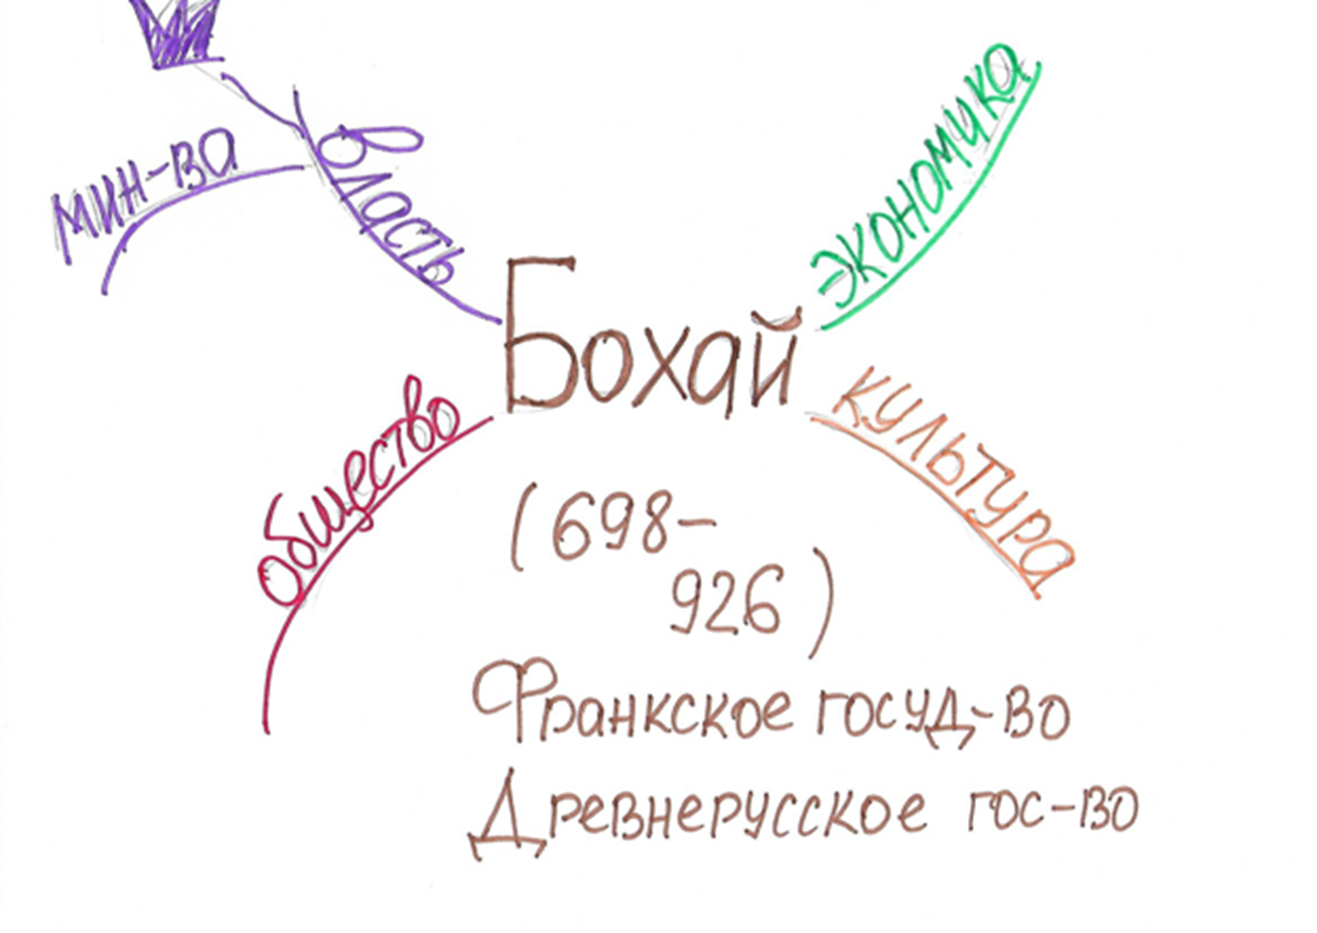 мин-ва
власть
экономика
Бохай
общество
культура
(698-
926)
Франкское госуд-во
Древнерусское гос-во